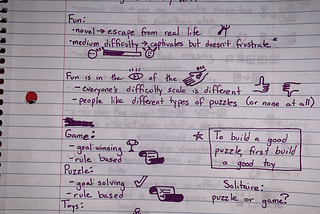 Fun:
• novel → escape from real life
• medium difficulty → captivates but doesn't frustrate
Fun is in the of the
- everyone's difficulty scale is different
- people like different types of puzzles (or none at all)
Game:
- goal: winning
- rule based
* To build a good
puzzle, first build
a good toy
Puzzle:
- goal: solving
- rule based
Solitaire:
puzzle or game?
Toys: